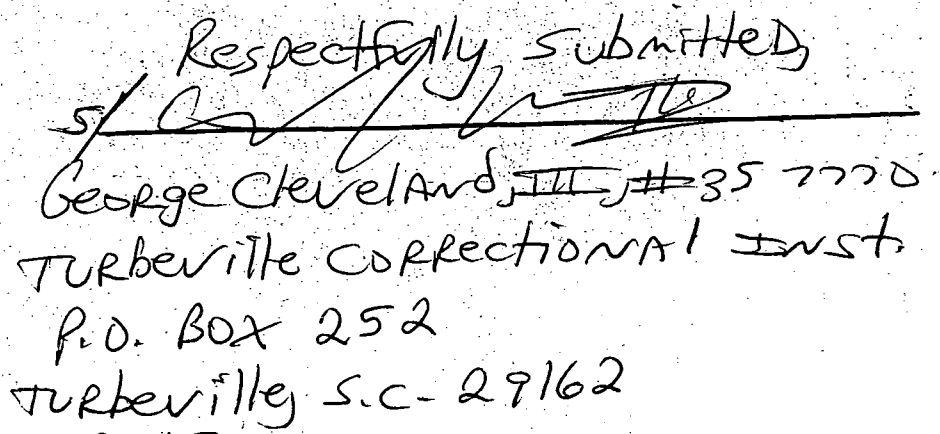 Respectfully, Submitted,
s/
George Cleveland, III, #35 7770
Turbeville Correctional Inst.
P.O. Box 252
Turbeville, S.C. 29162